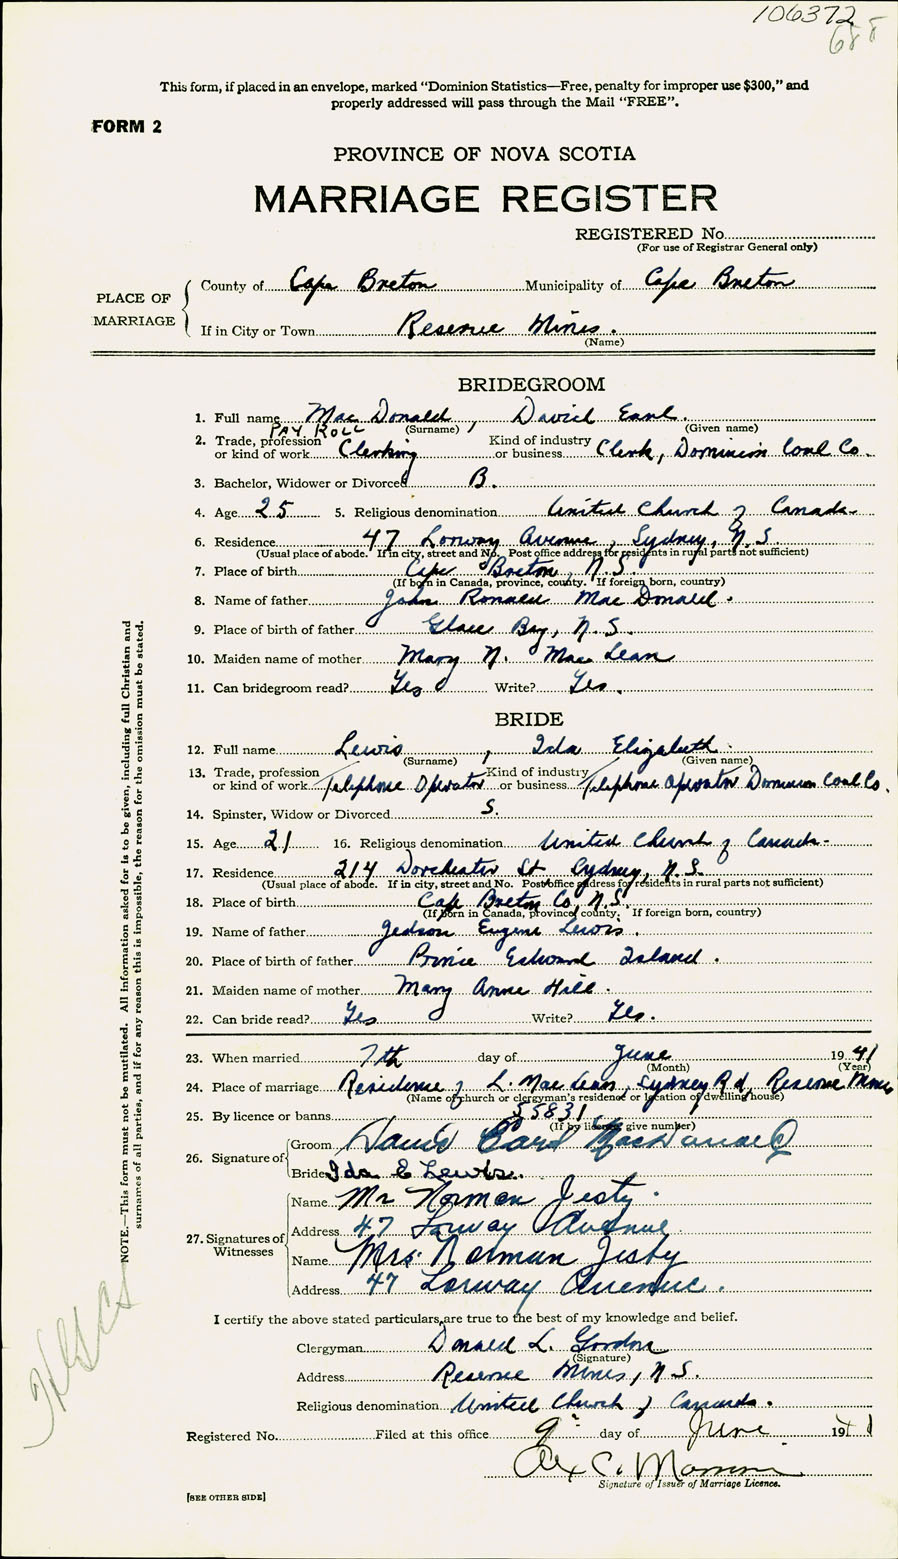 106372
688
This form, if placed in an envelope, marked "Dominion Statistics—Free, penalty for improper use $300," and
properly addressed will pass through the Mail "FREE".
FORM 2
PROVINCE OF NOVA SCOTIA
MARRIAGE REGISTER
REGISTERED No.
(For use of Registrar General only)
PLACE OF MARRIAGE
County of Cape Breton Municipality of Cape Breton
If in City or Town Reserve Mines.
(Name)
BRIDEGROOM
1. Full name Mac Donald, David Earl.
(Surname) (Given name)
PAY ROLL
2. Trade, profession or kind of work Clerking Kind of industry or business Clerk, Dominion Coal Co.
3. Bachelor, Widower or Divorced B.
4. Age 25 5. Religious denomination United Church of Canada
6. Residence 47 Lorway Avenue, Sydney, N.S.
(Usual place of abode. If in city, street and No. Post office address for residents in rural parts not sufficient)
7. Place of birth Cape Breton, N.S.
(If born in Canada, province, county. If foreign born, country)
8. Name of father John Ronald Mac Donald.
9. Place of birth of father Glace Bay, N.S.
10. Maiden name of mother Mary N. Mac Lean
11. Can bridegroom read? Yes Write? Yes.
BRIDE
12. Full name Lewis, Ida Elizabeth.
(Surname) (Given name)
13. Trade, profession or kind of work Telephone Operator Kind of industry or business Telephone Operator Dominion Coal Co.
14. Spinster, Widow or Divorced S.
15. Age 21 16. Religious denomination United Church of Canada.
17. Residence 214 Dorchester St Sydney, N.S.
(Usual place of abode. If in city, street and No. Post office address for residents in rural parts not sufficient)
18. Place of birth Cape Breton Co, N.S.
(If born in Canada, province, county. If foreign born, country)
19. Name of father Judson Eugene Lewis.
20. Place of birth of father Prince Edward Island.
21. Maiden name of mother Mary Anne Hill.
22. Can bride read? Yes Write? Yes.
23. When married 7th day of June 1941
(Month) (Year)
24. Place of marriage Residence of L. Mac Lean, Sydney Rd, Reserve Mines
(Name of church or clergyman's residence or location of dwelling house)
25. By licence or banns 55831
(If by licence, give number)
26. Signature of Groom David Earl MacDonald
Bride Ida E Lewis.
27. Signatures of Witnesses
Name Mr Norman Jesty.
Address 47 Lorway Avenue
Name Mrs. Norman Jesty
Address 47 Lorway Avenue.
I certify the above stated particulars are true to the best of my knowledge and belief.
Clergyman Donald L. Gordon
(Signature)
Address Reserve Mines, N.S.
Religious denomination United Church of Canada.
Registered No. Filed at this office 9th day of June 1941
Alex C.
Signature of Issuer of Marriage Licence.
[SEE OTHER SIDE]
NOTE.—This form must not be mutilated. All Information asked for is to be given, including full Christian and
surnames of all parties, and if for any reason this is impossible, the reason for the omission must be stated.